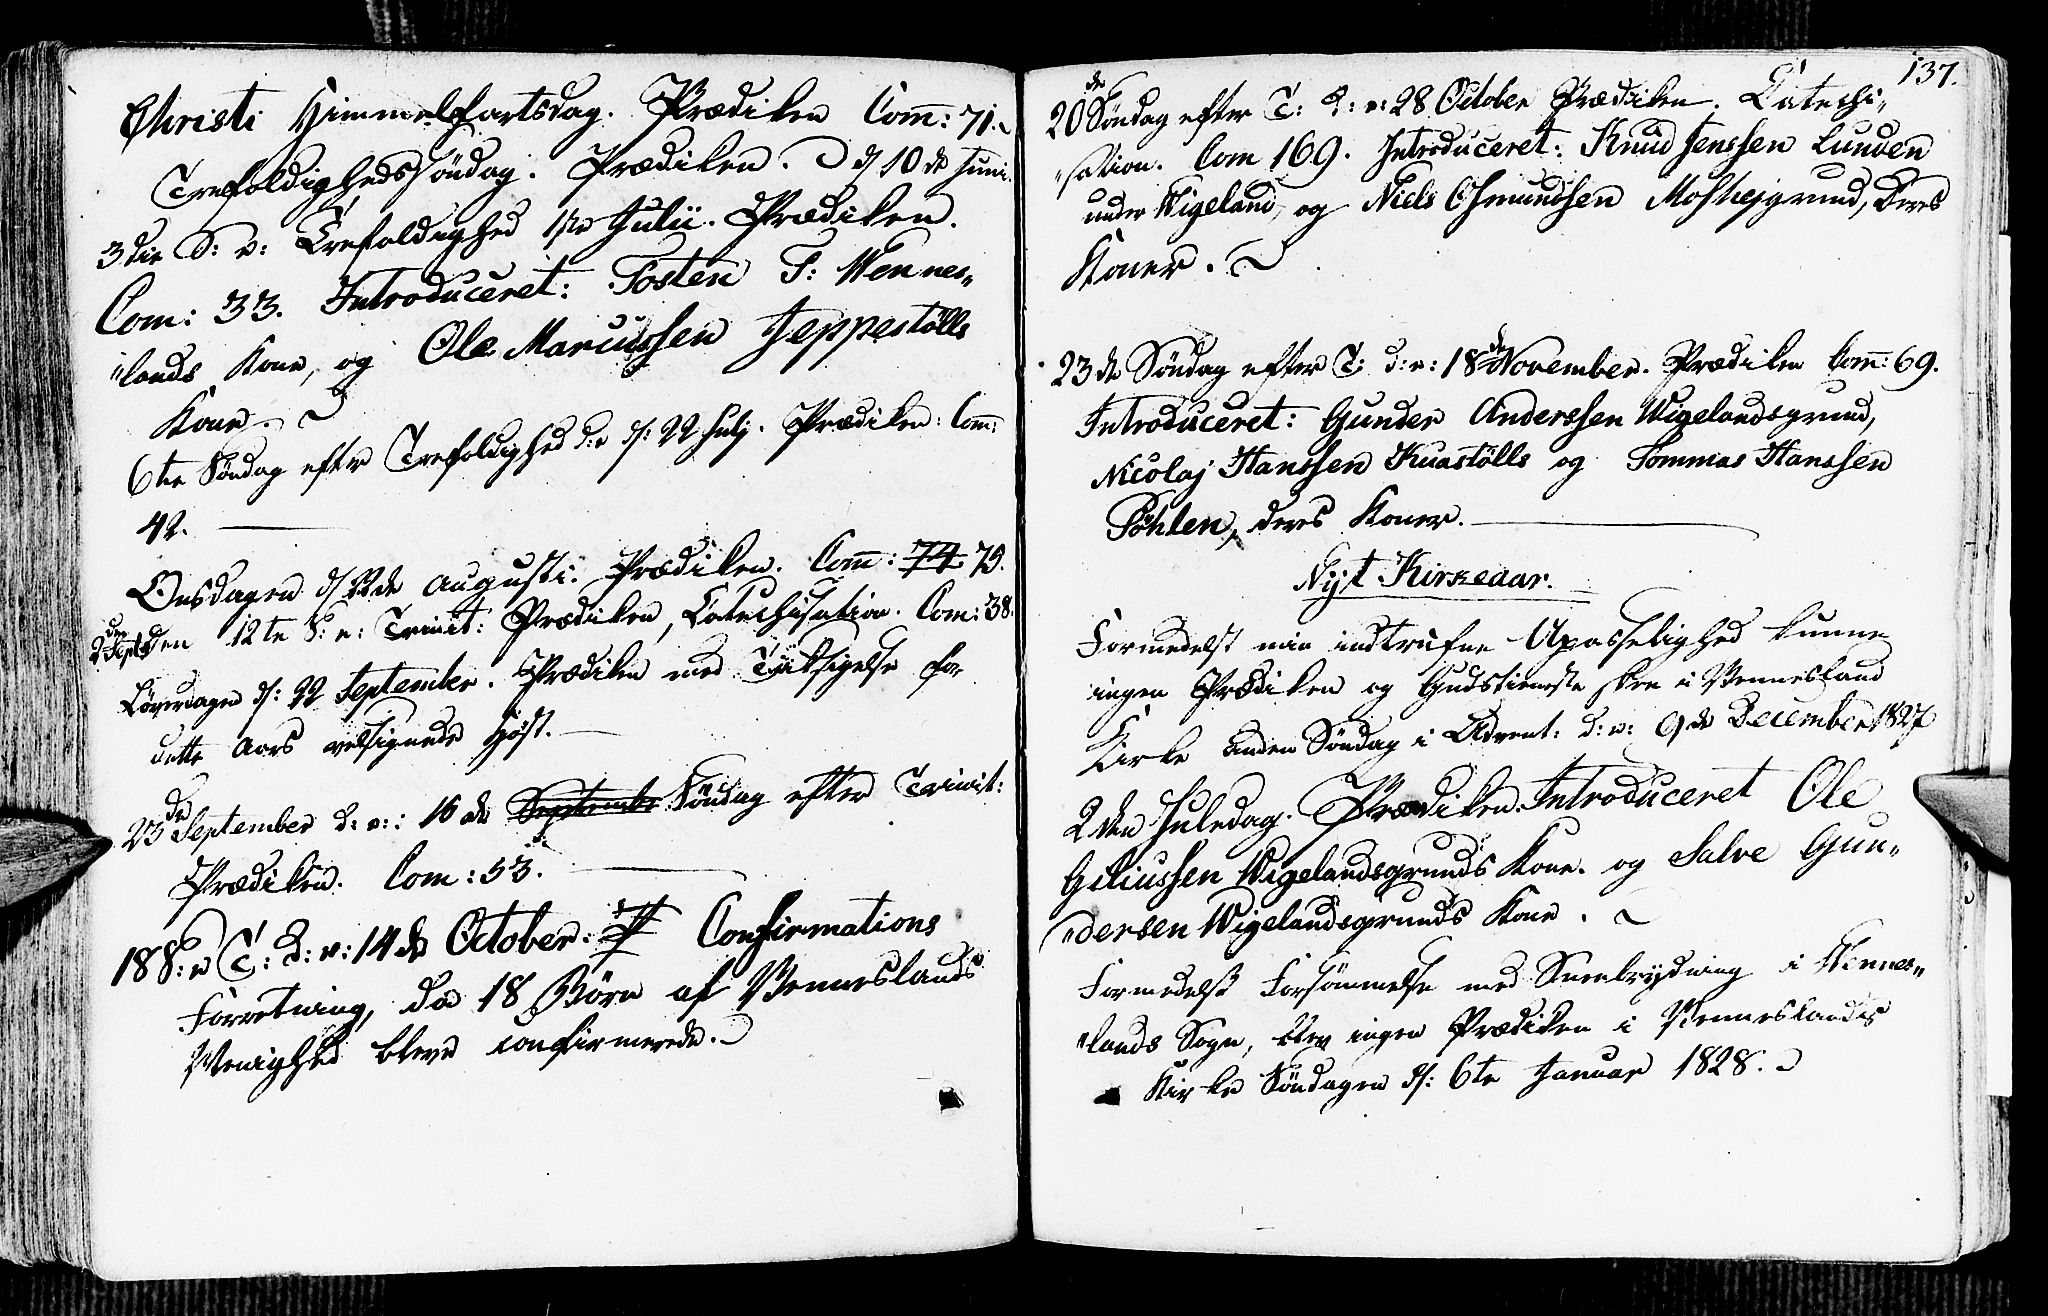 Christi Himmelfartsdag. Prædiken Com̄: 71.
Trefoldigheds Söndag. Prædiken. d 10de Juni.
3die S: e: Trefoldighed 1ste Julii. Prædiken.
Com: 33. Introduceret: Tosten T: Wennes„
„lands Kone, og Ole Marcussen Jeppestölls
Kone.
6te Söndag efter Trefoldighed d: e d: 22 Julj. Prædiken: Com̄:
42.
Onsdagen d 22de Augusti. Prædiken. Com̄: 74 75.
2den Septb den 12te S: e: Trinit: Prædiken, Catechisation. Com: 38.
Löverdagen d: 22 September. Prædiken med Taksigelse for
dette Aars velsignede Höst.
23de September d: e: 16de Septembr Söndag efter Trinit:
Prædiken. Com: 53.
18 S: e T: d: e: 14de October: Confirmations
Forretning, da 18 Börn af Venneslands
Menighed bleve confirmerede.
137.
20de Söndag efter T: d: e: 28 October Prædiken. Catechi„
„sation. Com 169. Introduceret: Knud Jenssen Lunden
under Wigeland, og Niels Osmundsen Moshejgrund, Deres
Koner.
23de Söndag efter T: d: e: 18de November. Prædiken Com̄: 69.
Introduceret: Gunder Anderssen Wigelandsgrund,
Nicolaj Hanssen Kuastölls og Tommas Hanssen
Röhlen, deres Koner.
Nyt Kirkeaar.
Formedelst min indtrufne Upasselighed kunne
ingen Prædiken og Gudstieneste skee i Vennesland
Kirke anden Söndag i Advent: d: e: 9de December 1827
2den Juledag. Prædiken. Introduceret Ole
Giliussen Wigelandsgrunds Kone. og Salve Gun„
„dersen Wigelandsgrunds Kone.
Formedelst Forsömmelse med Sneebrydning i Wennes„
„lands Sogn, blev ingen Prædiken i Venneslands
Kirke Söndagen d: 6te Januar 1828.